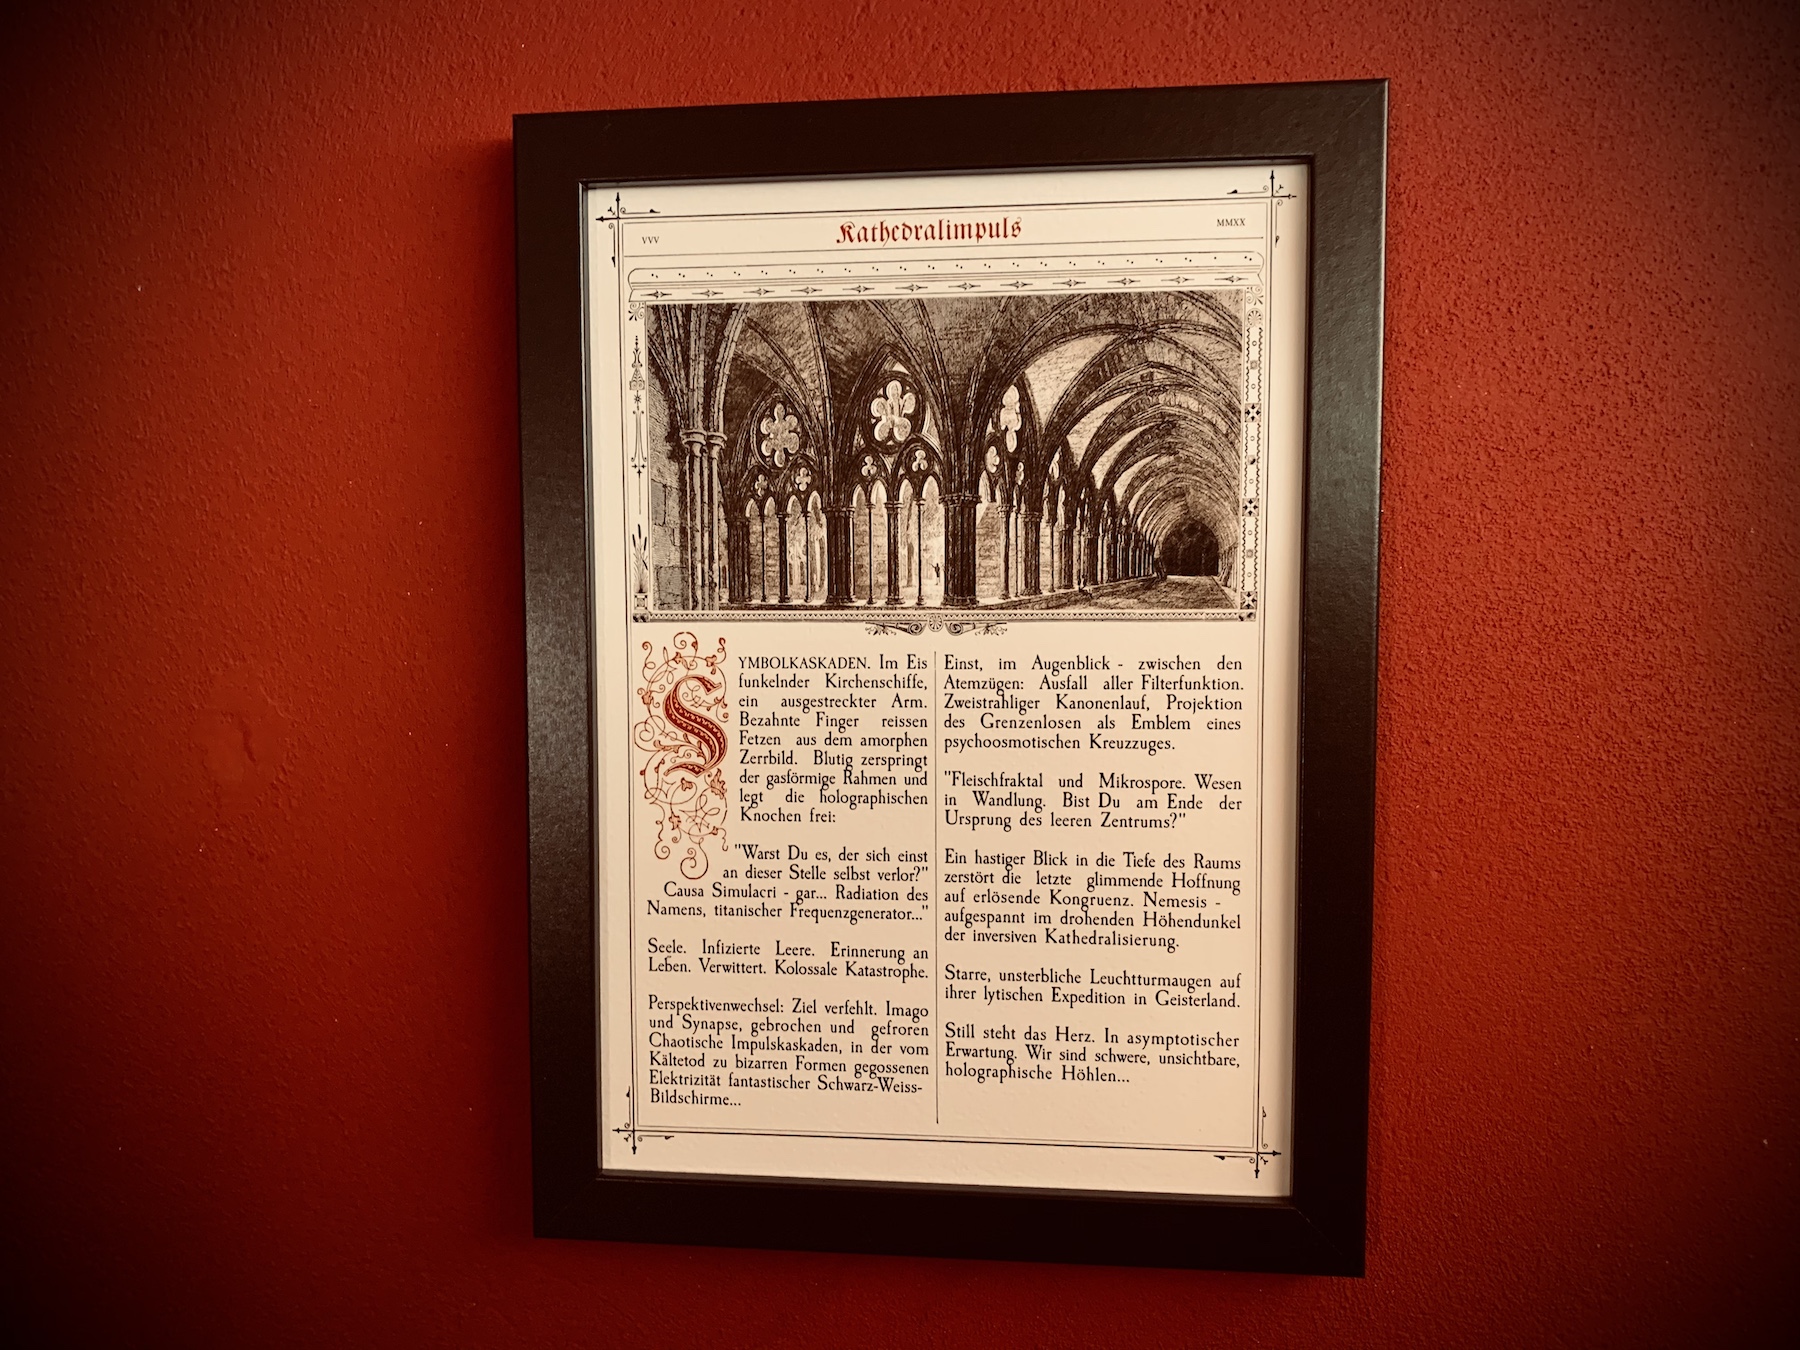 VVV
Kathedralimpuls
MMXX
SYMBOLKASKADEN. Im Eis
funkelnder Kirchenschiffe,
ein ausgestreckter Arm.
Bezahnte Finger reissen
Fetzen aus dem amorphen
Zerrbild. Blutig zerspringt
der gasförmige Rahmen und
legt die holographischen
Knochen frei:
"Warst Du es, der sich einst
an dieser Stelle selbst verlor?"
Causa Simulacri - gar... Radiation des
Namens, titanischer Frequenzgenerator..."
Seele. Infizierte Leere. Erinnerung an
Leben. Verwittert. Kolossale Katastrophe.
Perspektivenwechsel: Ziel verfehlt. Imago
und Synapse, gebrochen und gefroren
Chaotische Impulskaskaden, in der vom
Kältetod zu bizarren Formen gegossenen
Elektrizität fantastischer Schwarz-Weiss-
Bildschirme...
Einst, im Augenblick - zwischen den
Atemzügen: Ausfall aller Filterfunktion.
Zweistrahliger Kanonenlauf, Projektion
des Grenzenlosen als Emblem eines
psychoosmotischen Kreuzzuges.
"Fleischfraktal und Mikrospore. Wesen
in Wandlung. Bist Du am Ende der
Ursprung des leeren Zentrums?"
Ein hastiger Blick in die Tiefe des Raums
zerstört die letzte glimmende Hoffnung
auf erlösende Kongruenz. Nemesis -
aufgespannt im drohenden Höhendunkel
der inversiven Kathedralisierung.
Starre, unsterbliche Leuchtturmaugen auf
ihrer lytischen Expedition in Geisterland.
Still steht das Herz. In asymptotischer
Erwartung. Wir sind schwere, unsichtbare,
holographische Höhlen...